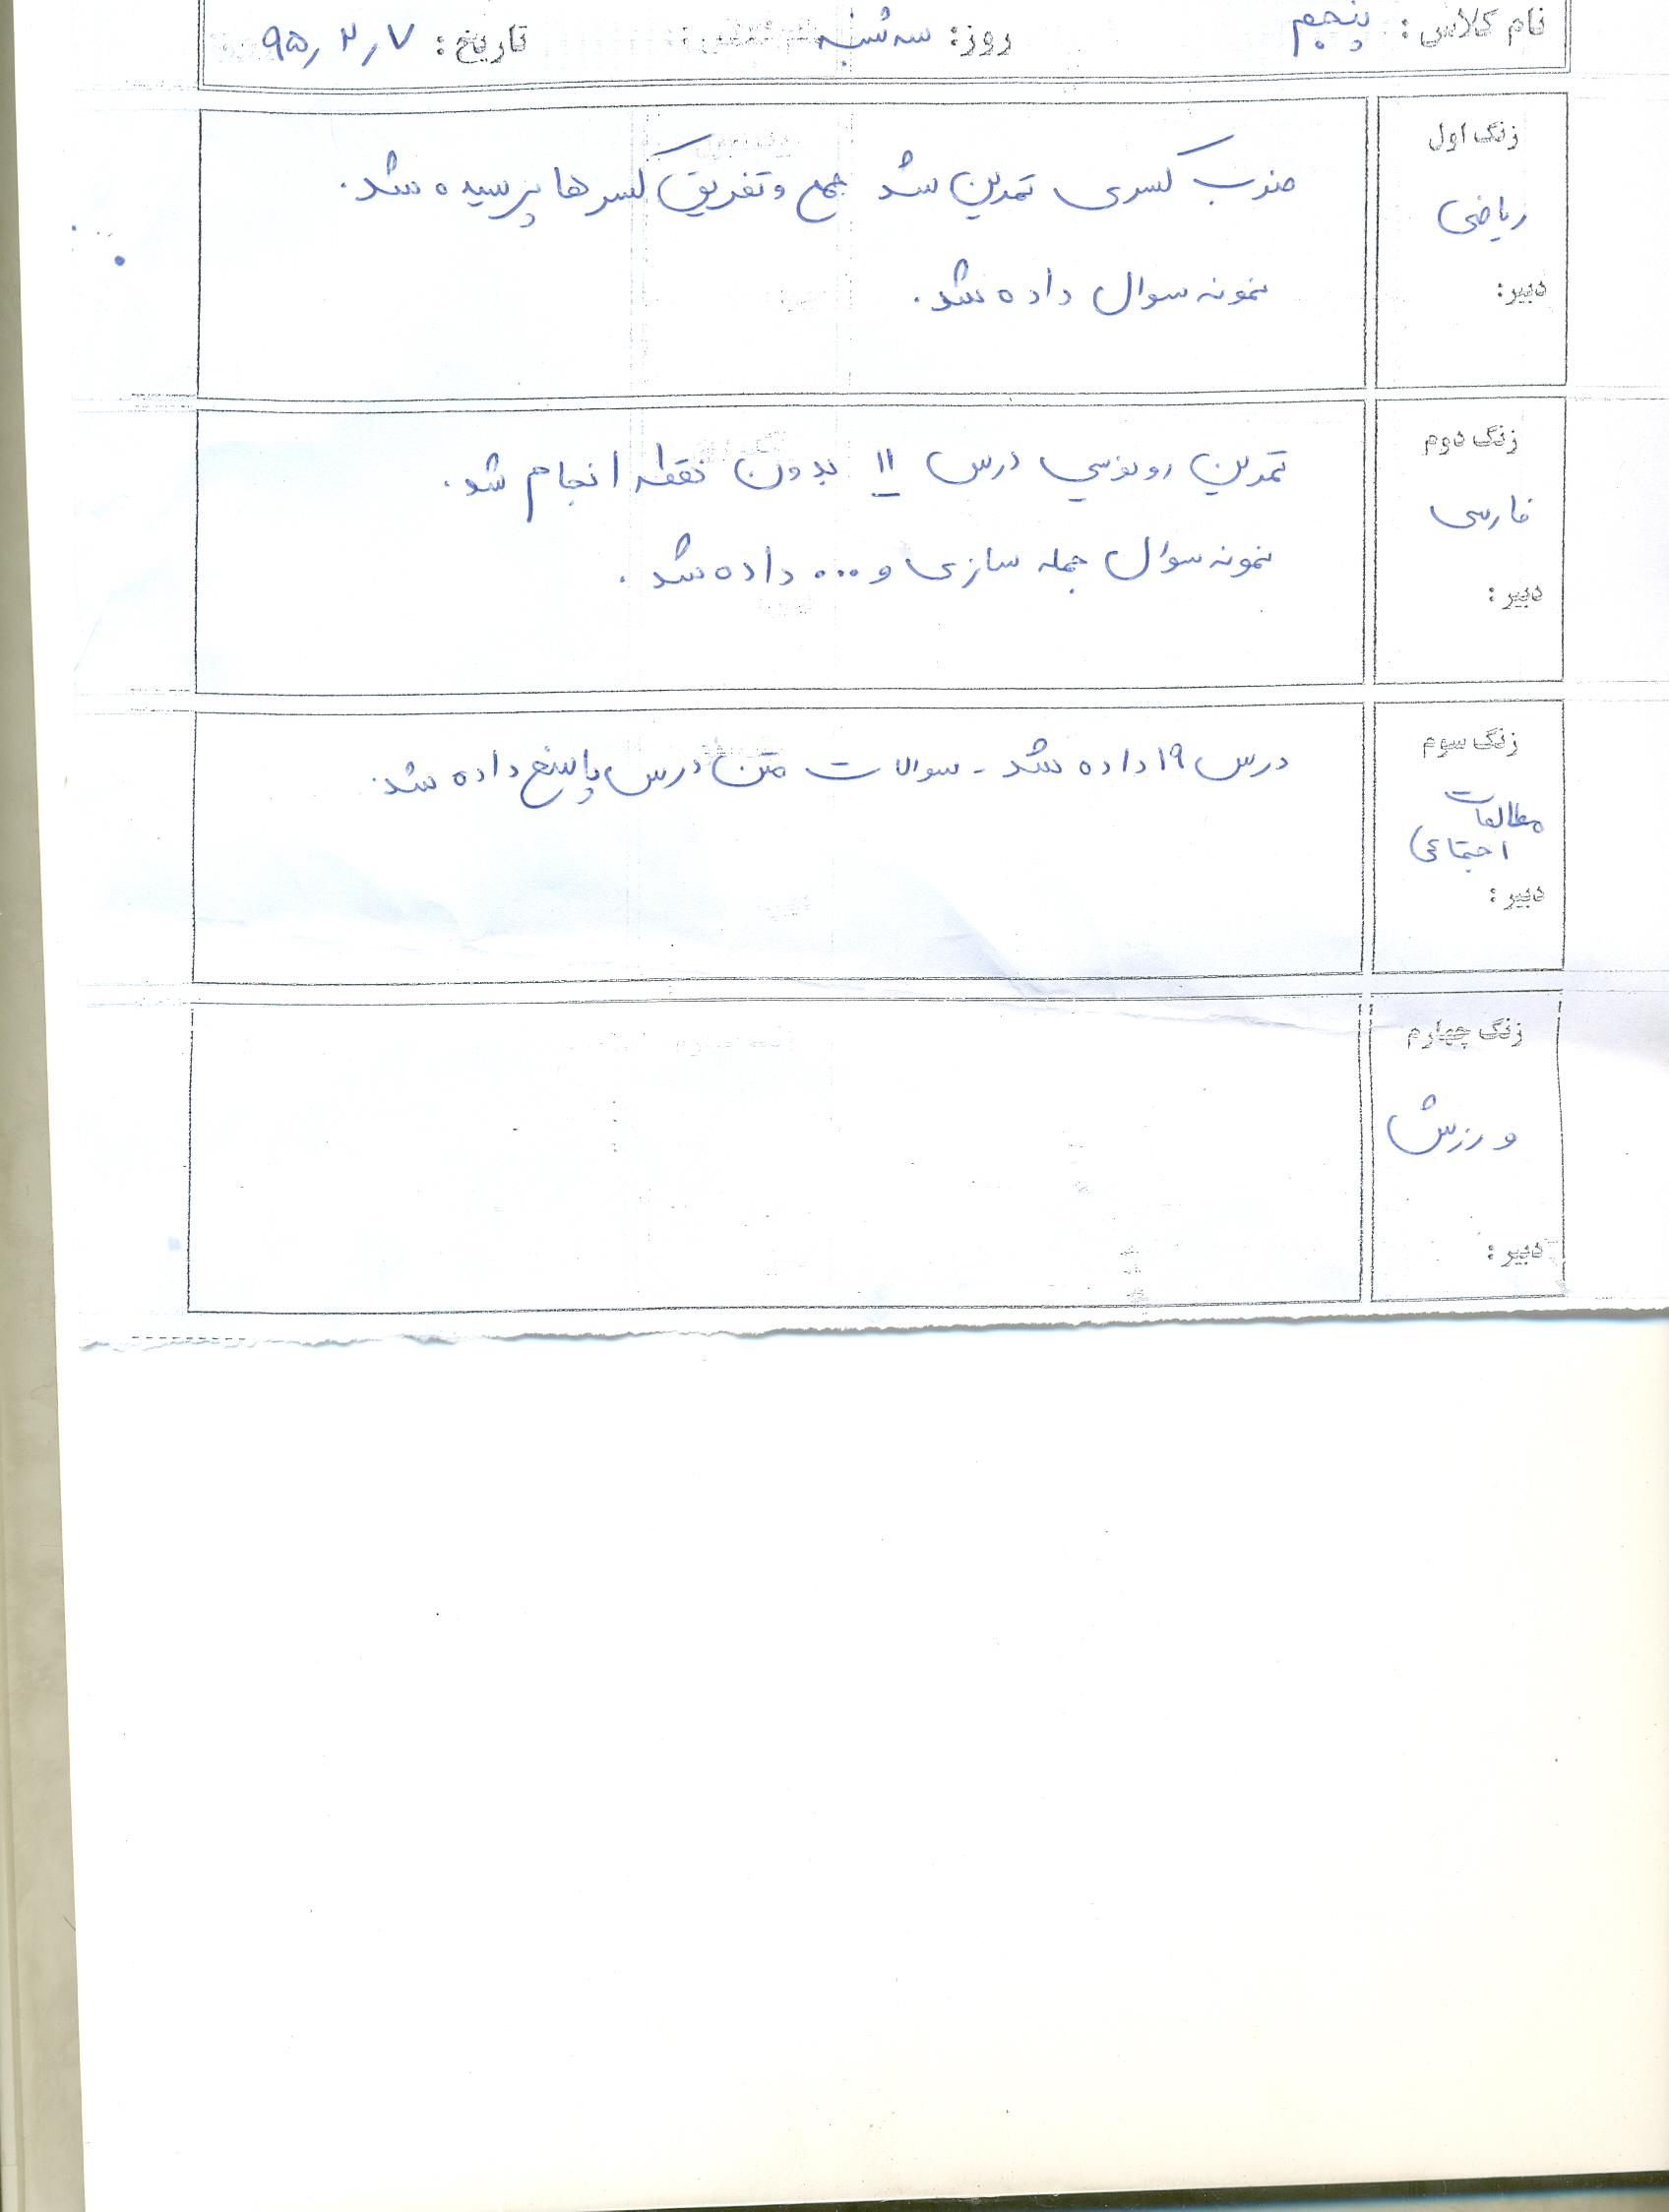 نام کلاس : پنجم روز: سه شنبه تاریخ: ۹۵٫۲٫۷
زنگ اول
ضرب کسری تمرین شد جمع و تفریق کسرها پرسیده شد.
ریاضی
نمونه سوال داده شد.
دبیر:
زنگ دوم
تمرین رونویسی درس ۱۱ بدون نقطه انجام شد.
فارسی
نمونه سوال جمله سازی و... داده شد.
دبیر:
زنگ سوم
درس ۱۹ داده شد - سوالات متن درس پاسخ داده شد.
مطالعات
اجتماعی
دبیر:
زنگ چهارم
ورزش
دبیر: